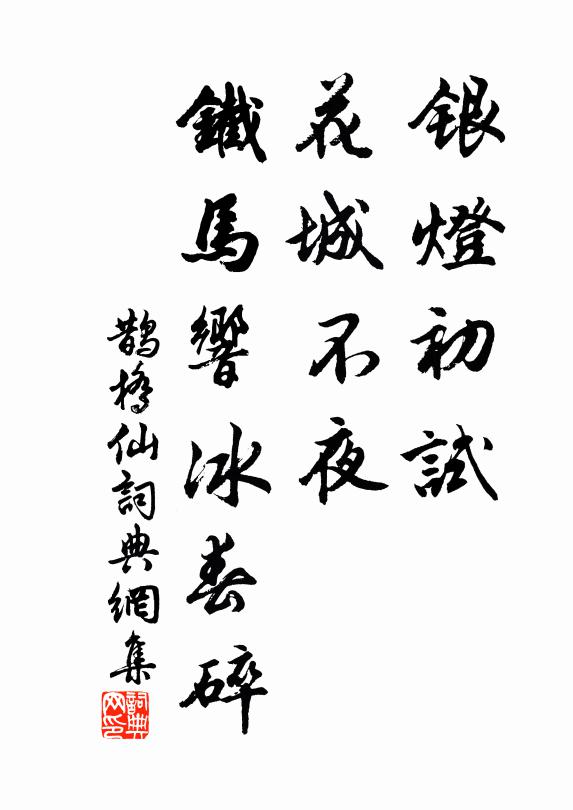 銀燈初試
花城不夜
鐵馬響冰春碎
鵲橋仙詞典網集
詞典
网印